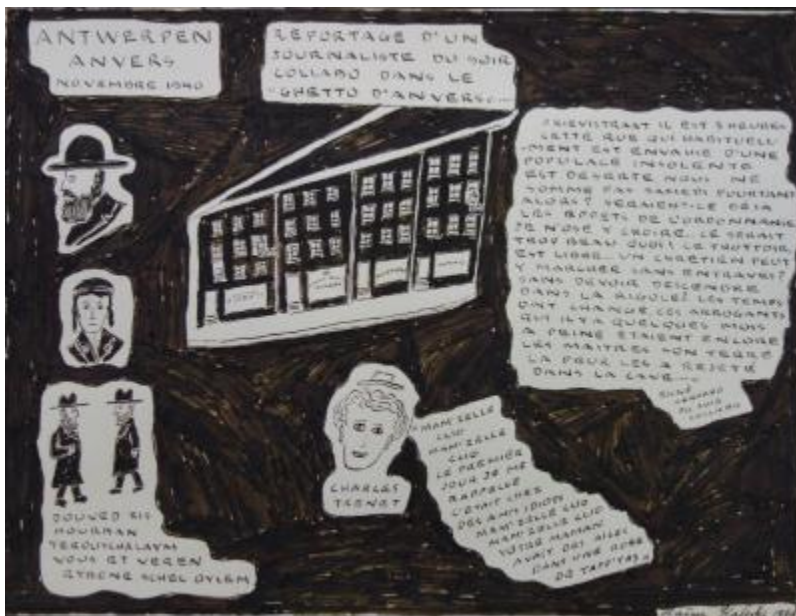 ANTWERPEN
ANVERS
NOVEMBRE 1940
REPORTAGE D'UN
JOURNALISTE DU SOIR
COLLABO DANS LE
"GHETTO D'ANVERS"...
IL EST 5 HEURES
CETTE RUE QUI HABITUELL
-MENT EST ENVAHIE D'UNE
POPULACE INSOLENTE
EST DESERTE NOUS NE
SOMME PAS SAMEDI POURTANT
ALORS? SERAIENT-CE DEJA
LES EFFETS DE L'ORDONNANCE
JE N'OSE Y CROIRE. CE SERAIT
TROP BEAU QUOI! LE TROTTOIR
EST LIBRE. UN CHRETIEN PEUT
Y MARCHER SANS ENTRAVES?
SANS DEVOIR DESCENDRE
DANS LA RIGOLE? LES TEMPS
ONT CHANGE. CES ARROGANTS
QUI IL Y A QUELQUES MOIS
A PEINE ETAIENT ENCORE
LES MAITRES SON TERRE
LA PEUR LES A REJETE
DANS LA CAVE....
DU SOIR
COLLABO
CHARLES
TRENET
"MAM'ZELLE
CLIO
MAM'ZELLE
CLIO
LE PREMIER
JOUR JE ME
RAPPELLE
C'ETAIT CHEZ
DES AMIS IDIOTS
MAM'ZELLE CLIO
MAM'ZELLE CLIO
VOTRE MAMAN
AVAIT DES AILES
DANS UNE ROBE
DE TAFFETAS"
HOURBAN
YEROUSCHALAYM
VOUS ET VEREN
SCHEL OYLEM